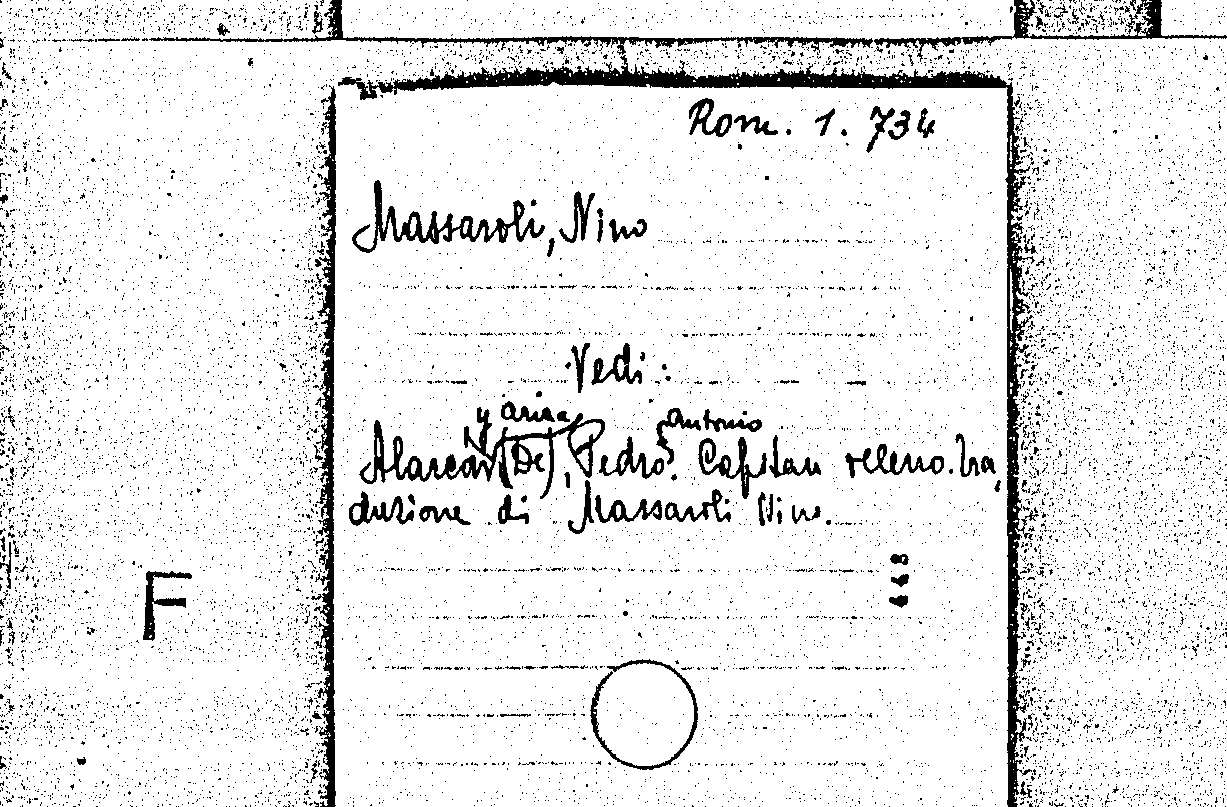 Rom. 1. 734
Massaroli, Nino
Vedi:
y ariza Antonio
Alarcon (De), Pedro. Capitan veleno. Tra
duzione di Massaroli Nino.
448
F